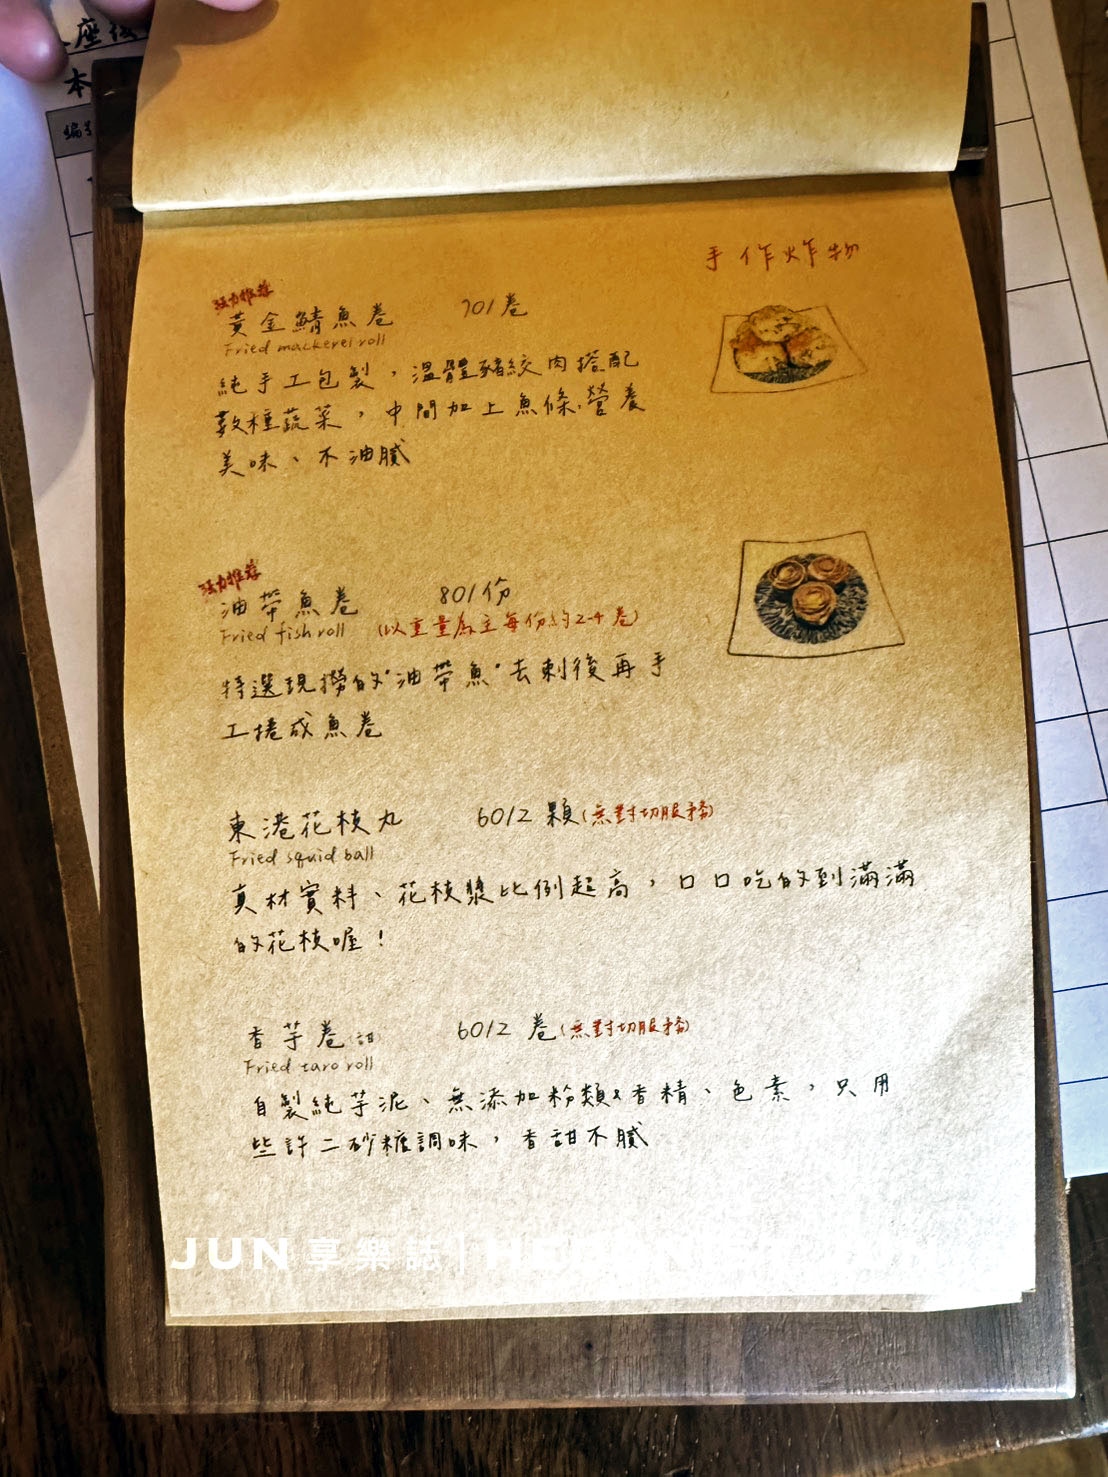 座後
本
編號
手作炸物
強力推荐
黃金鯖魚卷 70/卷
Fried mackerel roll
純手工包製，溫體豬絞肉搭配
數種蔬菜，中間加上魚條，營養
美味、不油膩
強力推荐
油帶魚卷 80/份
Fried fish roll (以重量為主每份約2-4卷)
特選現撈的"油帶魚"去刺後再手
工捲成魚卷
東港花枝丸 60/2 顆(無對切服務)
Fried squid ball
真材實料、花枝漿比例超高，口口吃的到滿滿
的花枝喔！
香芋卷(甜) 60/2 卷(無對切服務)
Fried taro roll
自製純芋泥、無添加粉類&香精、色素，只用
些許二砂糖調味，香甜不膩
JUN 享樂誌 |